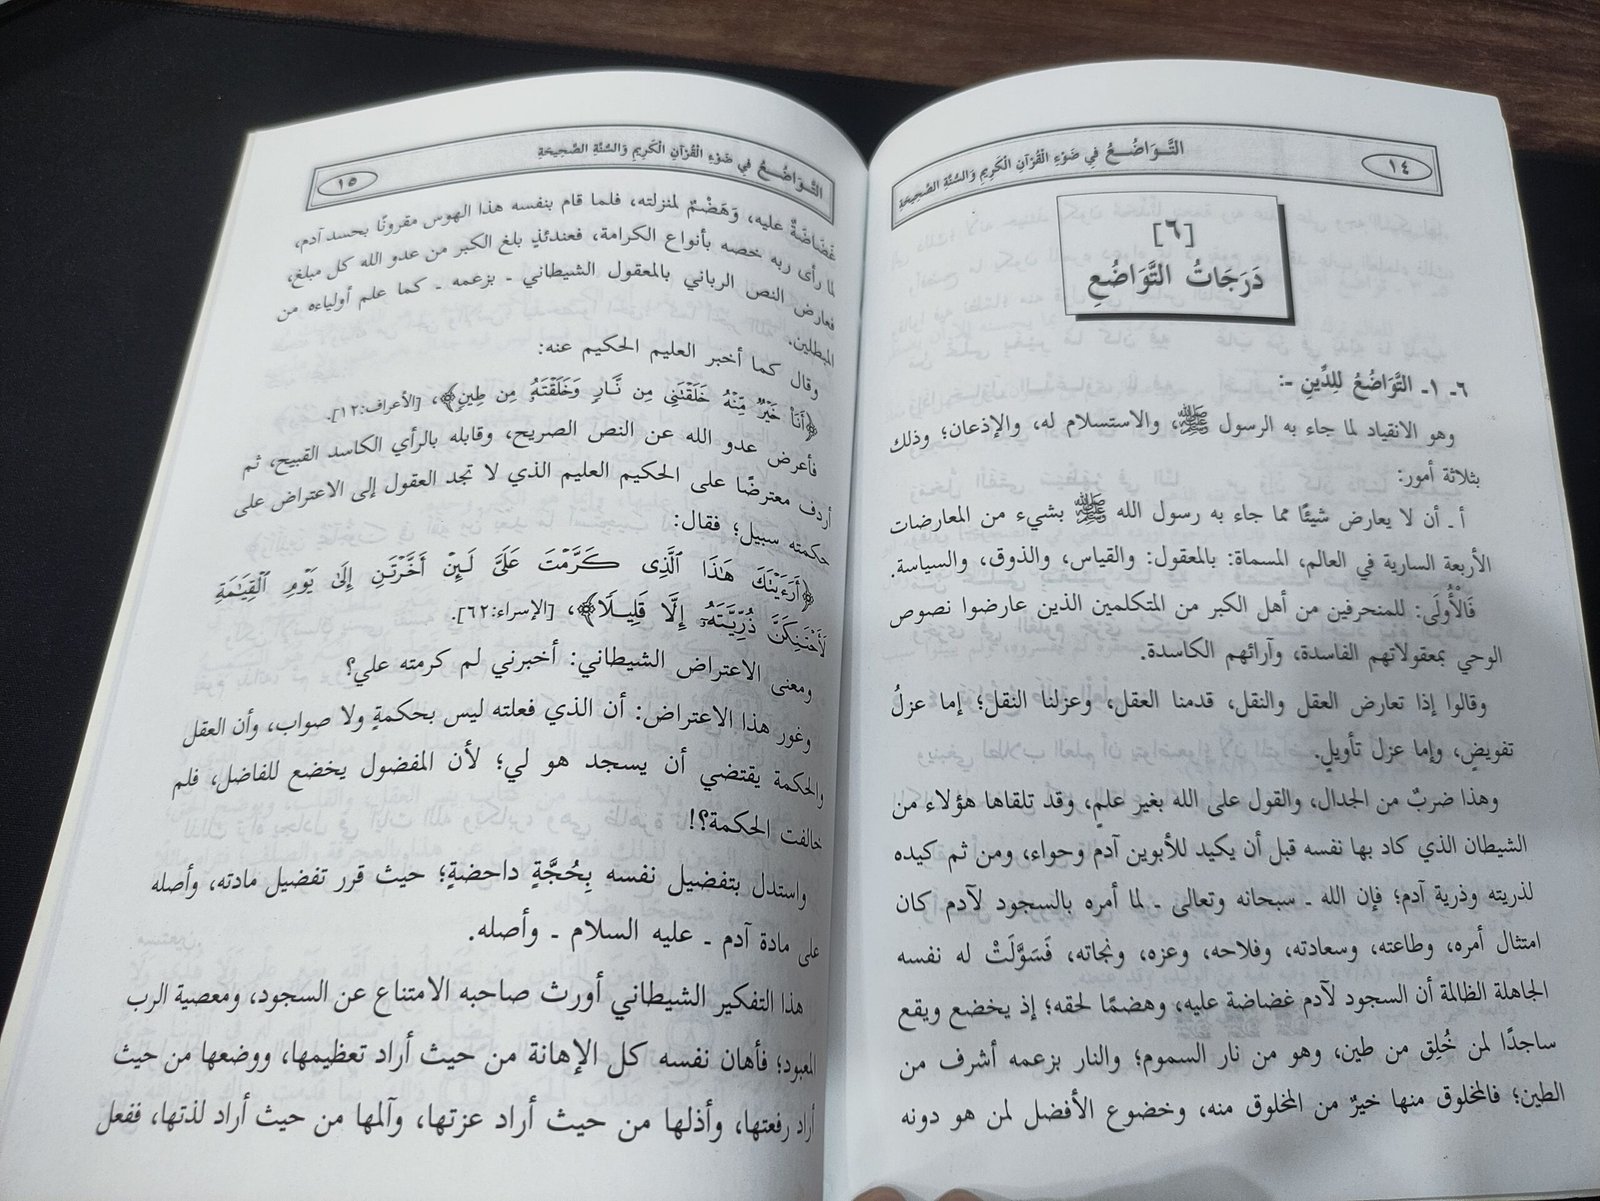 ١٤
التَّوَاضُعُ فِي ضَوْءِ الْقُرْآنِ الْكَرِيمِ وَالسُّنَّةِ الصَّحِيحَةِ
[٦]
دَرَجَاتُ التَّوَاضُعِ
٦ـ ١ـ التَّوَاضُعُ لِلدِّينِ ـ:
وهو الانقياد لما جاء به الرسول ﷺ، والاستسلام له، والإذعان؛ وذلك
بثلاثة أمور:
أ ـ أن لا يعارض شيئًا مما جاء به رسول الله ﷺ بشيء من المعارضات
الأربعة السارية في العالم، المسماة: بالمعقول: والقياس، والذوق، والسياسة.
فَالْأُولَى: للمنحرفين من أهل الكبر من المتكلمين الذين عارضوا نصوص
الوحي بمعقولاتهم الفاسدة، وآرائهم الكاسدة.
وقالوا إذا تعارض العقل والنقل، قدمنا العقل، وعزلنا النقل؛ إما عزلُ
تفويضٍ، وإما عزل تأويلٍ.
وهذا ضربٌ من الجدال، والقول على الله بغير علمٍ، وقد تلقاها هؤلاء من
الشيطان الذي كاد بها نفسه قبل أن يكيد للأبوين آدم وحواء، ومن ثم كيده
لذريته وذرية آدم؛ فإن الله ـ سبحانه وتعالى ـ لما أمره بالسجود لآدم كان
امتثال أمره، وطاعته، وسعادته، وفلاحه، وعزه، ونجاته، فَسَوَّلَتْ له نفسه
الجاهلة الظالمة أن السجود لآدم غضاضة عليه، وهضمًا لحقه؛ إذ يخضع ويقع
ساجدًا لمن خُلِق من طين، وهو من نار السموم؛ والنار بزعمه أشرف من
الطين؛ فالمخلوق منها خيرٌ من المخلوق منه، وخضوع الأفضل لمن هو دونه
التَّوَاضُعُ فِي ضَوْءِ الْقُرْآنِ الْكَرِيمِ وَالسُّنَّةِ الصَّحِيحَةِ
١٥
غَضَاضَةٌ عليه، وَهَضْمٌ لمنزلته، فلما قام بنفسه هذا الهوس مقرونًا بحسد آدم،
لما رأى ربه خصه بأنواع الكرامة، فعندئذٍ بلغ الكبر من عدو الله كل مبلغ،
فعارض النص الرباني بالمعقول الشيطاني ـ بزعمه ـ كما علم أولياءه من
المبطلين.
وقال كما أخبر العليم الحكيم عنه:
﴿أَنَا۠ خَيْرٌ مِّنْهُ خَلَقْتَنِى مِن نَّارٍ وَخَلَقْتَهُۥ مِن طِينٍ﴾، [الأعراف:١٢].
فأعرض عدو الله عن النص الصريح، وقابله بالرأي الكاسد القبيح، ثم
أردف معترضًا على الحكيم العليم الذي لا تجد العقول إلى الاعتراض على
حكمته سبيل؛ فقال:
﴿أَرَءَيْتَكَ هَٰذَا ٱلَّذِى كَرَّمْتَ عَلَىَّ لَئِنْ أَخَّرْتَنِ إِلَىٰ يَوْمِ ٱلْقِيَٰمَةِ
لَأَحْتَنِكَنَّ ذُرِّيَّتَهُۥٓ إِلَّا قَلِيلًا﴾، [الإسراء:٦٢].
ومعنى الاعتراض الشيطاني: أخبرني لم كرمته علي؟
وغور هذا الاعتراض: أن الذي فعلته ليس بحكمةٍ ولا صواب، وأن العقل
والحكمة يقتضي أن يسجد هو لي؛ لأن المفضول يخضع للفاضل، فلم
خالفت الحكمة؟!
واستدل بتفضيل نفسه بِحُجَّةٍ داحضةٍ؛ حيث قرر تفضيل مادته، وأصله
على مادة آدم ـ عليه السلام ـ وأصله.
هذا التفكير الشيطاني أورث صاحبه الامتناع عن السجود، ومعصية الرب
المعبود؛ فأهان نفسه كل الإهانة من حيث أراد تعظيمها، ووضعها من حيث
أراد رفعتها، وأذلها من حيث أراد عزتها، وآلمها من حيث أراد لذتها، ففعل